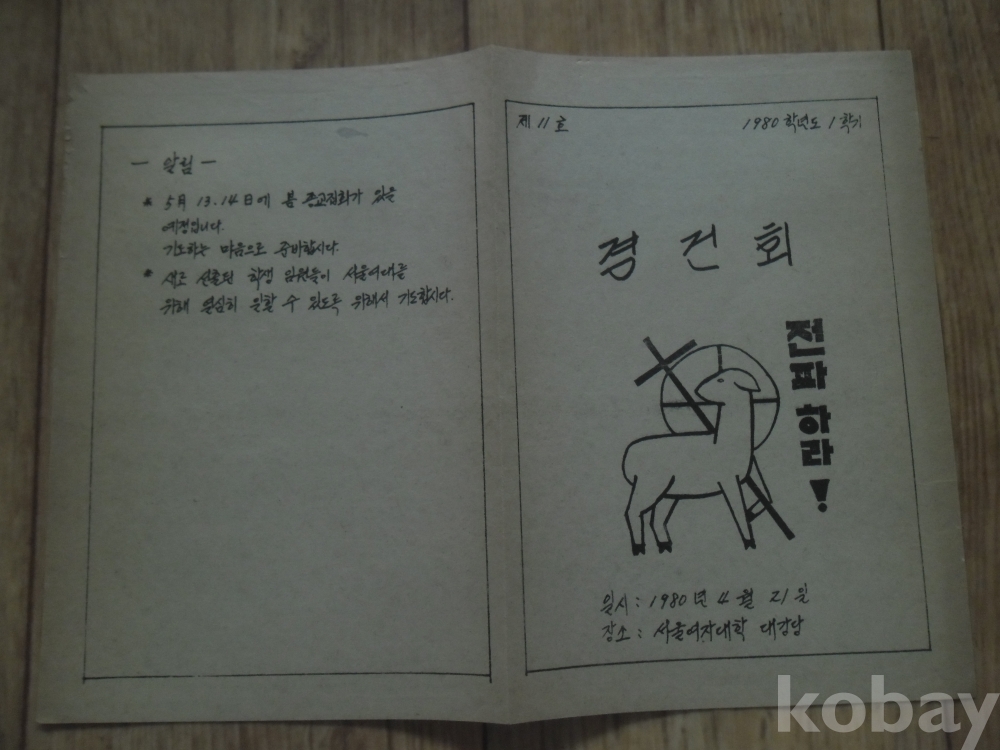 — 알림 —
* 5月 13.14日에 봄 종교집회가 있을
예정입니다.
기도하는 마음으로 준비합시다.
* 새로 선출된 학생 임원들이 서울여대를
위해 열심히 일할 수 있도록 위해서 기도합시다.
제 11호
1980 학년도 1학기
경건회
전파하라!
일시 : 1980년 4월 21일
장소 : 서울여자대학 대강당
kobay